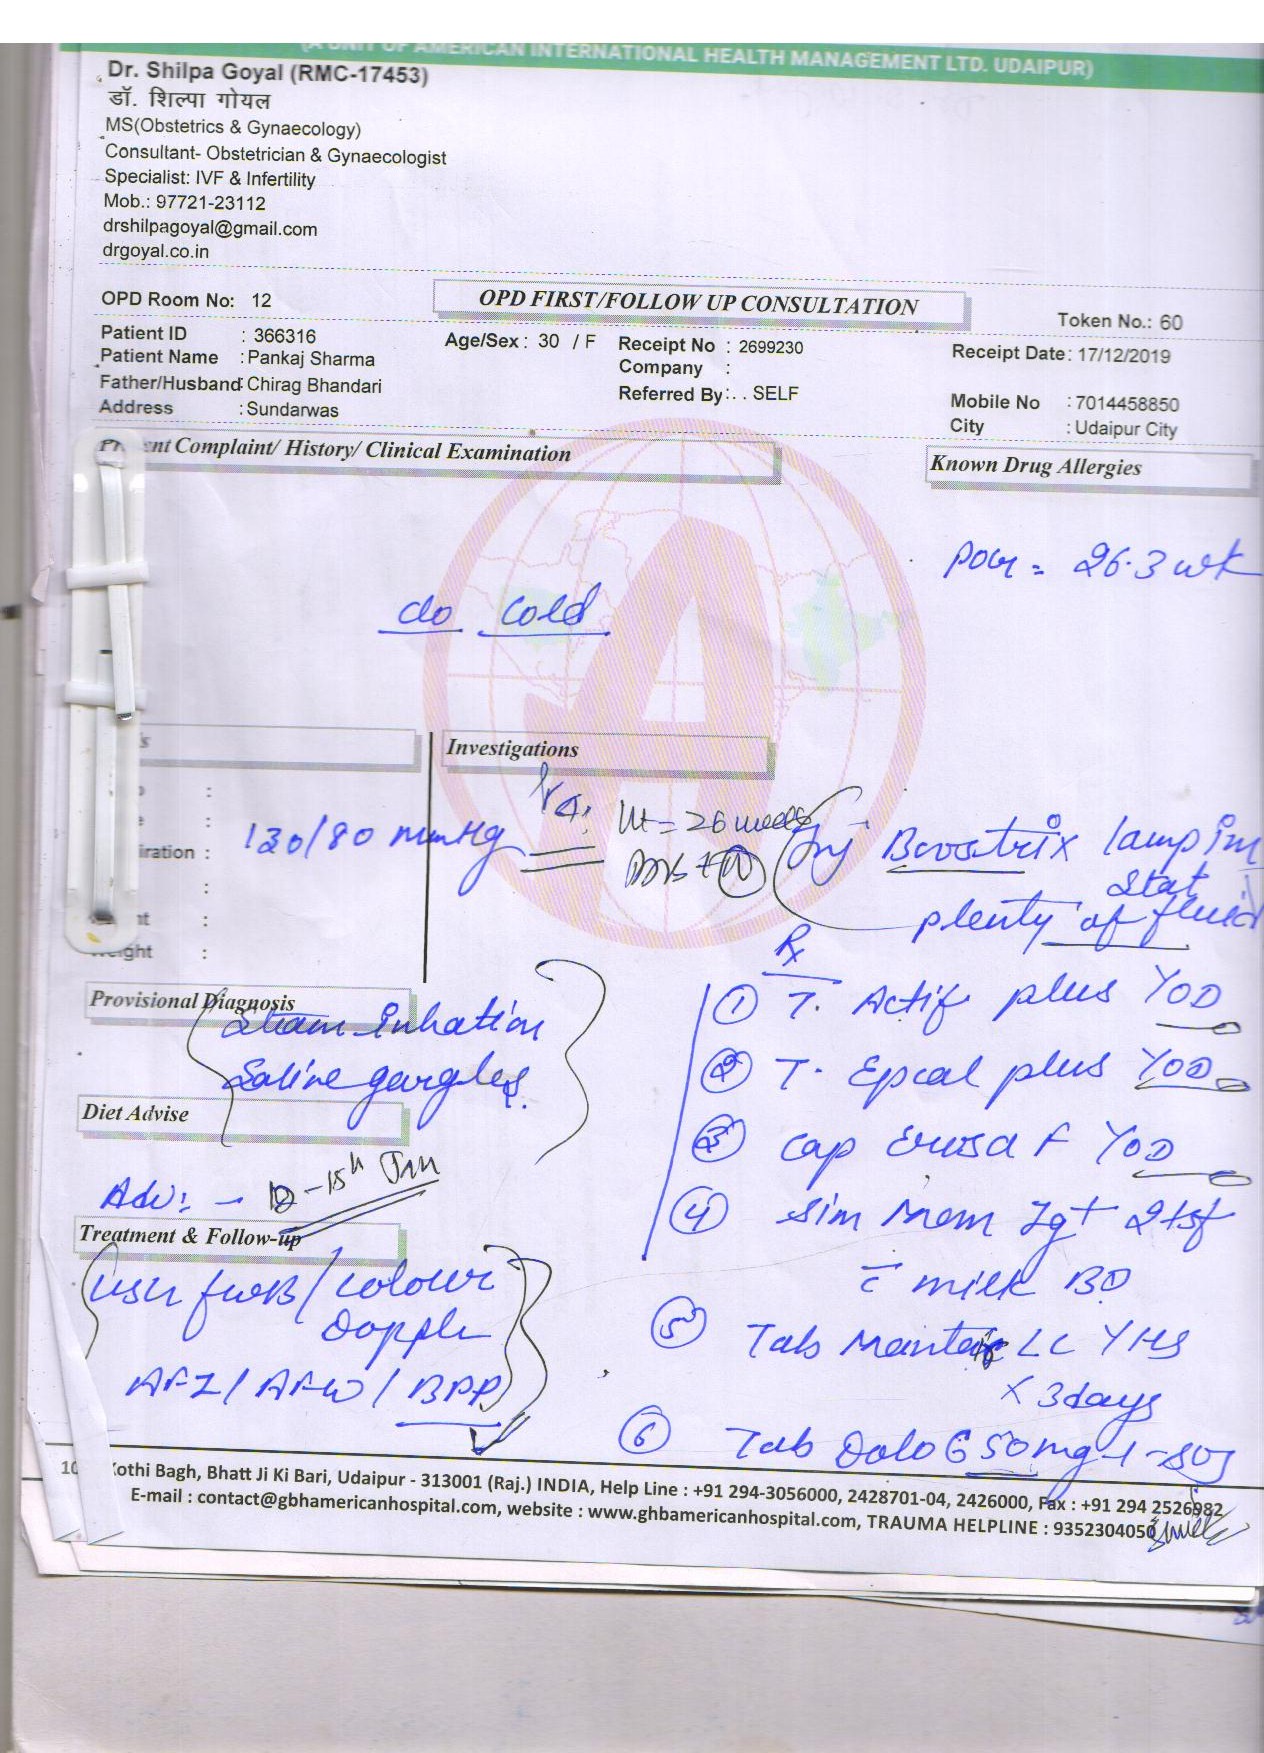 (A UNIT OF AMERICAN INTERNATIONAL HEALTH MANAGEMENT LTD. UDAIPUR)
Dr. Shilpa Goyal (RMC-17453)
डॉ. शिल्पा गोयल
MS(Obstetrics & Gynaecology)
Consultant- Obstetrician & Gynaecologist
Specialist: IVF & Infertility
Mob.: 97721-23112
drshilpagoyal@gmail.com
drgoyal.co.in
OPD Room No: 12
OPD FIRST/FOLLOW UP CONSULTATION
Token No.: 60
Patient ID : 366316
Age/Sex : 30 / F
Receipt No : 2699230
Receipt Date: 17/12/2019
Patient Name : Pankaj Sharma
Company :
Father/Husband: Chirag Bhandari
Referred By: . . SELF
Mobile No : 7014458850
Address : Sundarwas
City : Udaipur City
nt Complaint/ History/ Clinical Examination
Known Drug Allergies
POG = 26.3 wk
c/o cold
Investigations
iration :
130/80 mmHg
Ut = 26 weeks
Inj Boostrix 1amp im
stat
plenty of fluid
Rx
Provisional Diagnosis
Steam Inhation
Saline gargles
Diet Advise
Adv: -
Treatment & Follow-up
USG FWB / colour
Dopple
AFI / AFW / BPP
① T. Actif plus YOD
② T. Epcal plus YOD
③ Cap F YOD
④ Sim Mom 2tsf
c̄ milk BD
⑤ Tab LC YHS
x 3days
⑥ Tab Dolo 650mg 1-SOS
10 Kothi Bagh, Bhatt Ji Ki Bari, Udaipur - 313001 (Raj.) INDIA, Help Line : +91 294-3056000, 2428701-04, 2426000, Fax : +91 294 2526982
E-mail : contact@gbhamericanhospital.com, website : www.ghbamericanhospital.com, TRAUMA HELPLINE : 9352304050